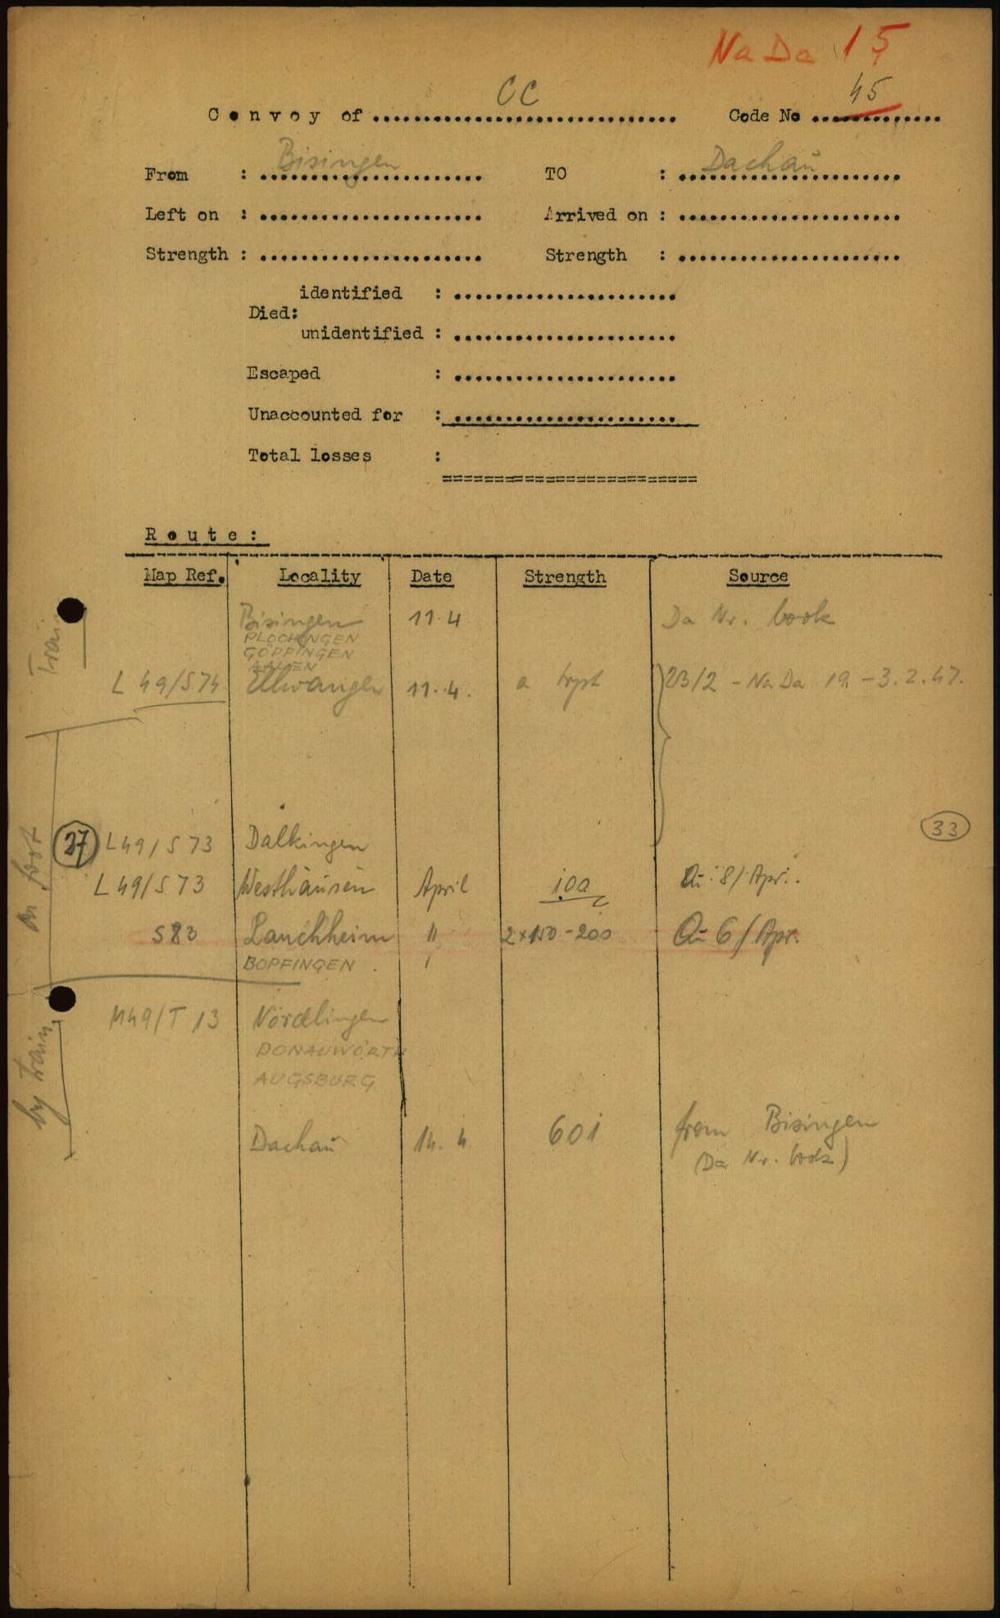 Na Da 15
Convoy of CC Code No 45
From : Bisingen TO : Dachau
Left on : Arrived on :
Strength : Strength :
identified :
Died:
unidentified :
Escaped :
Unaccounted for :
Total losses :
Route:
Map Ref. Locality Date Strength Source
Train
Bisingen 11.4 Da Nr. book
PLOCHINGEN
GÖPPINGEN
AALEN
L 49/S74 Ellwangen 11.4. a trpt 23/2 - Na Da 19 - 3.2.47.
on foot
33
37 L49/S 73 Dalkingen
L49/S73 Westhausen April 100 Qu: 8/Apr.
S83 Lauchheim " 2x150-200 Qu 6/Apr.
BOPFINGEN
by train
M49/T 13 Nördlingen
DONAUWÖRTH
AUGSBURG
Dachau 14.4 601 from Bisingen
(Da Nr. book)